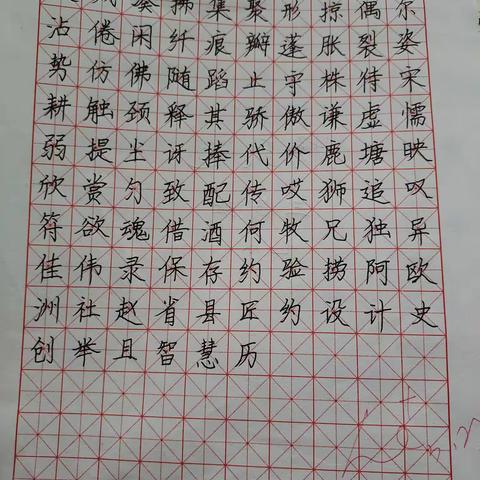 凑 拂 集 聚 形 掠 偶 尔
沾 倦 闲 纤 痕 瓣 蓬 胀 裂 姿
势 仿 佛 随 蹈 止 守 株 待 宋
耕 触 颈 释 其 骄 傲 谦 虚 懦
弱 提 尘 讶 捧 代 价 鹿 塘 映
欣 赏 匀 致 配 传 哎 狮 追 叹
符 欲 魂 借 酒 何 牧 兄 独 异
佳 伟 录 保 存 约 验 捞 阿 欧
洲 社 赵 省 县 匠 约 设 计 史
创 举 且 智 慧 历